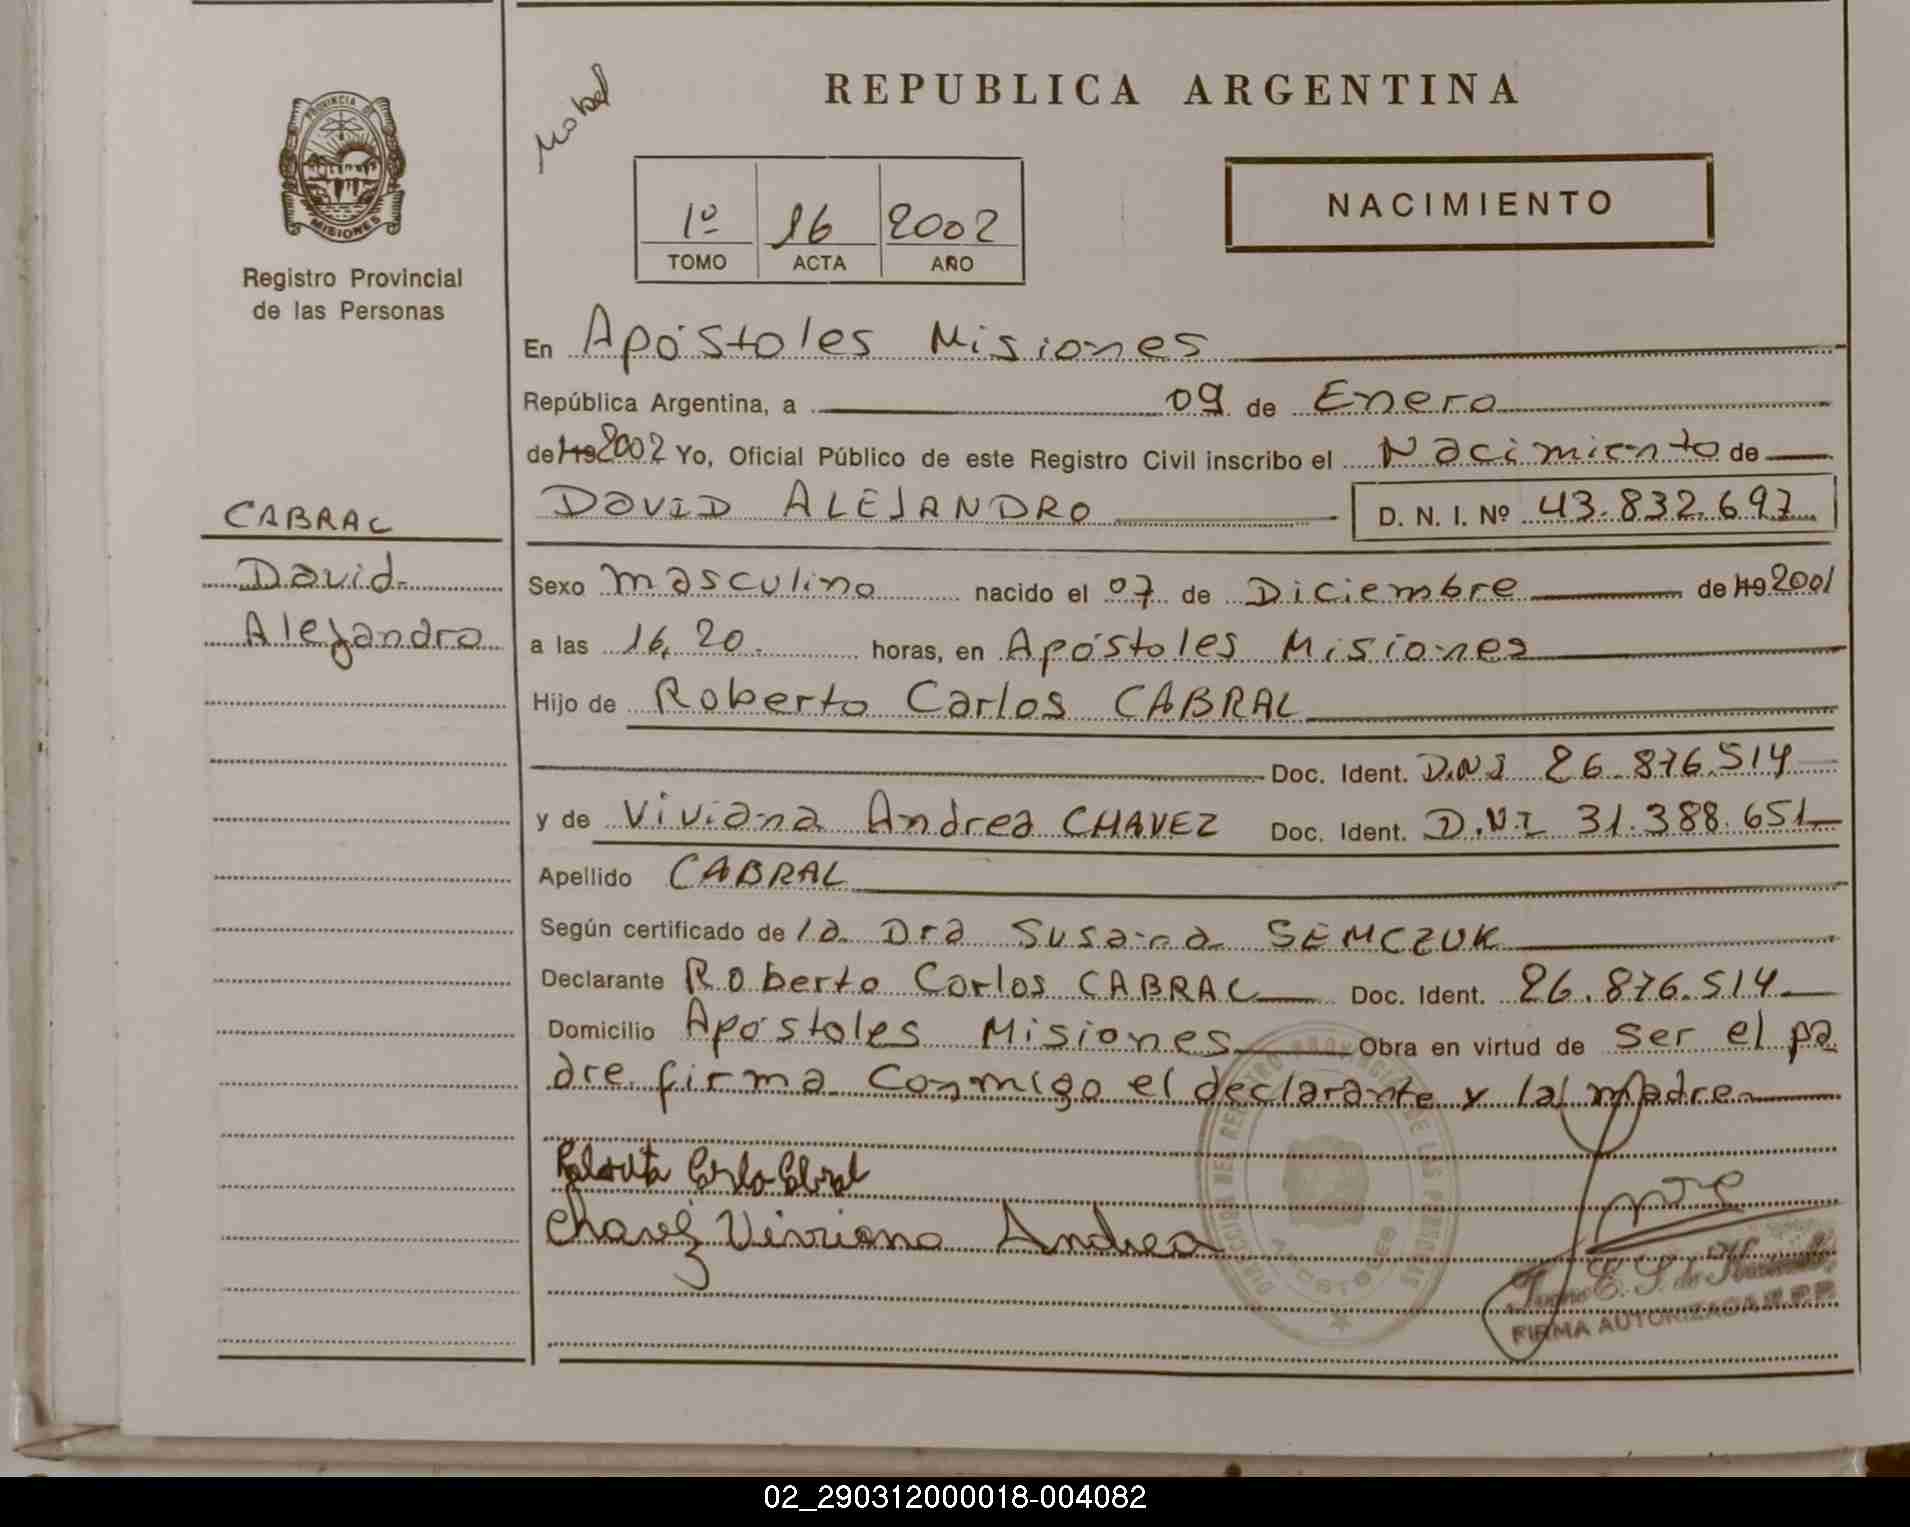 REPUBLICA ARGENTINA
PROVINCIA DE MISIONES
Registro Provincial
de las Personas
1º 16 2002
TOMO ACTA AÑO
NACIMIENTO
En Apóstoles Misiones
República Argentina, a 09 de Enero
de 19 2002 Yo, Oficial Público de este Registro Civil inscribo el Nacimiento de
DAVID ALEJANDRO D. N. I. Nº 43.832.697
CABRAL
David
Alejandro
Sexo masculino nacido el 07 de Diciembre de 19 2001
a las 16,20. horas, en Apóstoles Misiones
Hijo de Roberto Carlos CABRAL
Doc. Ident. D.N.I 26.876.514
y de Viviana Andrea CHAVEZ Doc. Ident. D.N.I 31.388.651
Apellido CABRAL
Según certificado de la Dra Susana SEMCZUK
Declarante Roberto Carlos CABRAL Doc. Ident. 26.876.514
Domicilio Apóstoles Misiones Obra en virtud de ser el pa
dre firma conmigo el declarante y la madre
Roberto Carlos Cabral
Chavez Viviana Andrea
APOSTOLES
FIRMA AUTORIZADA R.P.P.
02_290312000018-004082